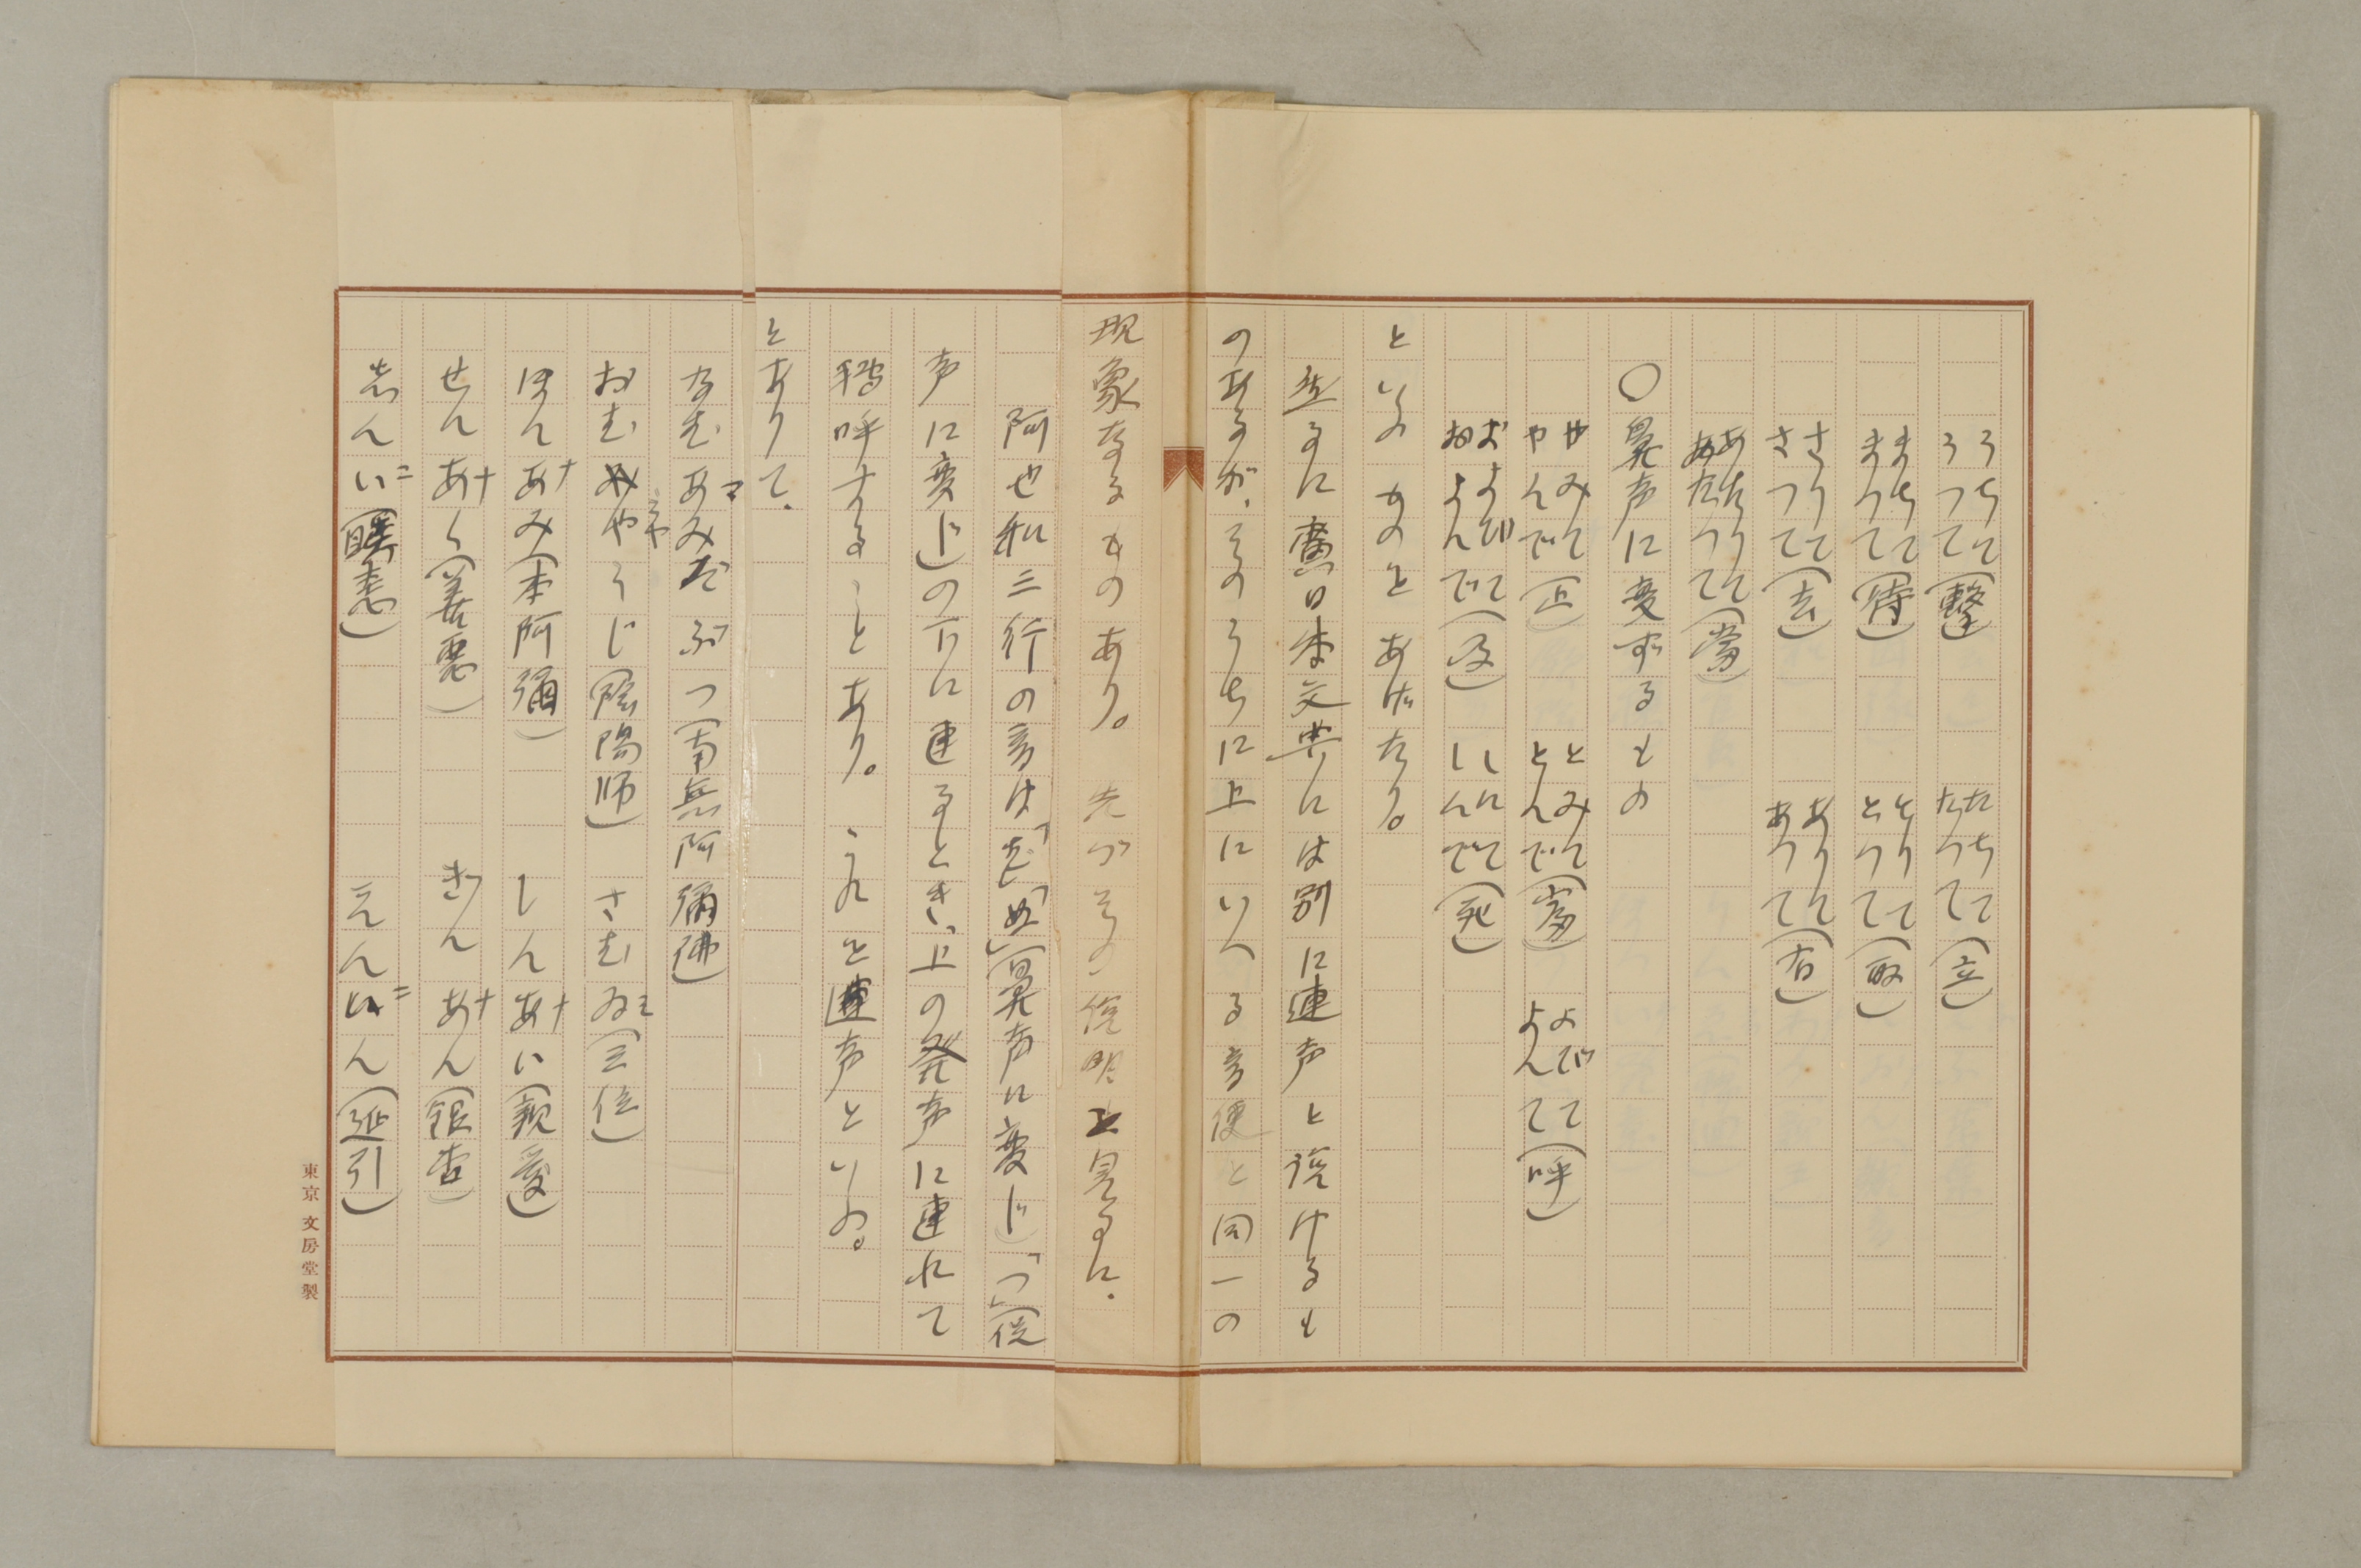 うちて うつて(撃) たちて たつて(立)
まちて まつて(待) とりて とつて(取)
さりて さつて(去) ありて あつて(有)
あたりて あたつて(當)
〇鼻声に変ずるもの
やみて やんで(止) とみて とんで(富) よびて よんで(呼)
およびて およんで(及) しにて しんで(死)
といふものをあげたり。
然るに廣日本文典には別に連声と説けるも
のあるが、そのうちに上にいへる音便と同一の
現象なるものあり。先づその説明を見るに、
阿也和三行の音は「む」「ぬ」(鼻声に変じ)「つ」(促
声に変じ)の下に連るとき、上の発声に連れて
稱呼することあり。これを連声といふ。
とありて、
なむあマみだぶつ(南無阿彌陀佛)
おむみやうじ(陰陽師) さむゐミ(三位)
ほんあナみ(本阿彌) しんあナい(親愛)
せんあナく(善悪) ぎんあナん(銀杏)
志んいニ(瞋恚) えんいニん(延引)
東京 文房堂製